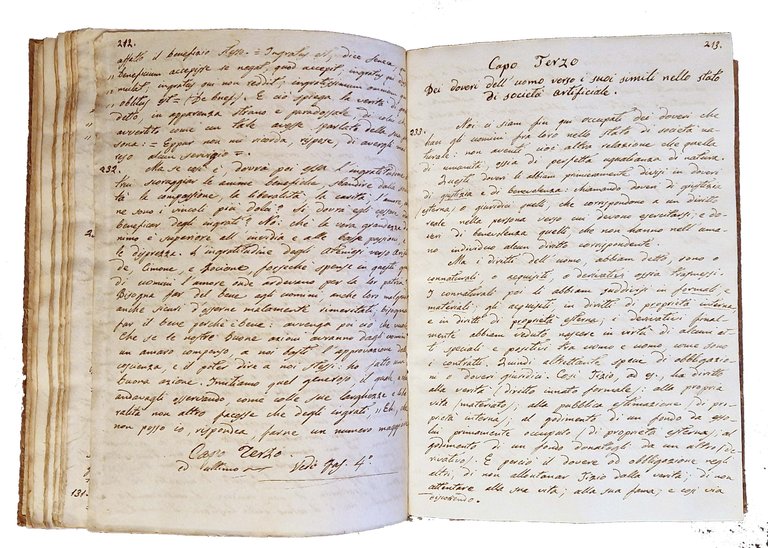 212.
affatto il beneficio stesso = Ingratus est, dice Seneca, qui
„ beneficium accepisse se negat, quod accepit; ingratus qui
„ qui non reddit; ingratissimus omnium qui
„ oblitus est = (De benef.). E ciò spiega la verità di
detto, in apparenza strano e paradossale di colui che
avvertito come un tale avesse sparlato della sua
sona: = Eppur non mi ricordo, rispose, di avergli mai
reso alcun servigio =.
232. Ma se così è, dovrà poi essa l'ingratitudine
trui scoraggiar le anime benefiche, sbandire dalla
tà la compassione, la liberalità, la carità, l'amore,
ne sono i vincoli più dolci? Si dovrà egli cessare
beneficar degli ingrati? No: chè la vera grandezza
nimo è superiore all'invidia e alle basse passioni, e
le disprezza. L'ingratitudine degli Ateniesi verso Aristi-
de, Cimone, e Focione, forsechè spense in questi
di uomini l'amore onde ardevano per la lor patria?
Bisogna far del bene agli uomini anche loro malgrado
anche sicuri d'esserne malamente rimeritati; bisogna
far il bene perchè è bene: avvenga poi ciò che vuole
Che se le nostre buone azioni avranno dagli uomini
un amaro compenso, a noi basti l'approvazione della
coscienza, e il poter dire a noi stessi: ho fatto una
buona azione. Imitiamo quel generoso il quale
andavagli osservando come colle sue larghezze e libe-
ralità non altro facesse che degli ingrati „ Eh,
non posso io, rispondea, farne un numero maggiore
Capo Terzo
ed ultimo Vedi Fas. 4°.
131.
213.
Capo Terzo
Dei doveri dell'uomo verso i suoi simili nello stato
di società artificiale.
233. Noi ci siam fin qui occupati dei doveri che
han gli uomini fra loro nello stato di società na-
turale: non aventi cioè altra relazione che quella
di umanità ossia di perfetta uguaglianza di natura.
Questi doveri li abbiam primieramente divisi in doveri
di giustizia e di benevolenza: chiamando doveri di giustizia
(esterna), o giuridici quelli, che corrispondono a un diritto
reale nella persona verso cui devono esercitarsi; e do-
veri di benevolenza quelli, che non hanno nell'uma-
no individuo alcun diritto corrispondente.
Ma i diritti dell'uomo, abbiam detto, sono o
connaturali o acquisiti o derivativi ossia trasmessi.
I connaturali poi li abbiam suddivisi in formali e
materiali; gli acquisiti in diritti di proprietà interna
e in diritti di proprietà esterna; i derivativi final-
mente abbiam veduto nascere in virtù di alcuni at-
ti speciali e positivi tra uomo e uomo, come sono
i contratti. Quindi altrettante specie di obbligazio-
ni o doveri giuridici. Così Tizio, ad es., ha diritto
alla verità (diritto innato formale); alla propria
vita (materiale); alla pubblica estimazione (di pro-
prietà interna); al godimento di un fondo da es-
lui primamente occupato (di proprietà esterna); al
godimento di un fondo donatogli da un altro (de-
rivativo). E perciò il dovere od obbligazione negli
altri, di non allontanar Tizio dalla verità; di non
attentare alla sua vita; alla sua fama; e così via
discorrendo.